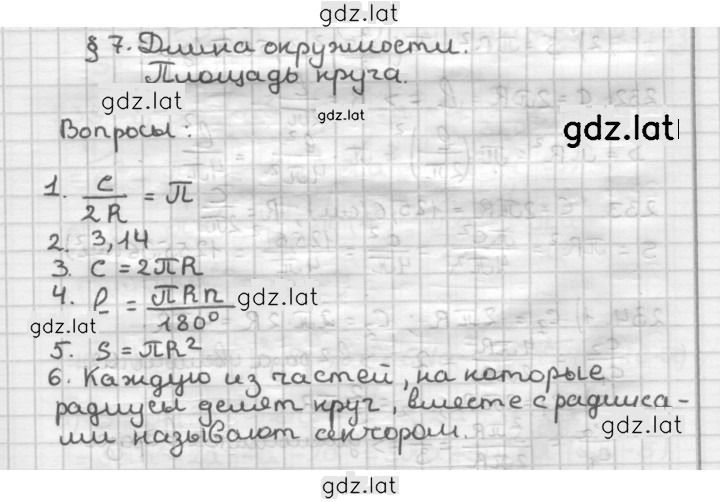 gdz.lat
§ 7. Длина окружности.
Площадь круга.
gdz.lat
gdz.lat
gdz.lat
Вопросы:
1. C/2R = π
2. 3,14
3. C = 2πR
4. ℓ = πRn/180°
gdz.lat
gdz.lat
5. S = πR²
6. Каждую из частей, на которые
радиусы делят круг, вместе с радиуса-
ми называют сектором.
gdz.lat
gdz.lat